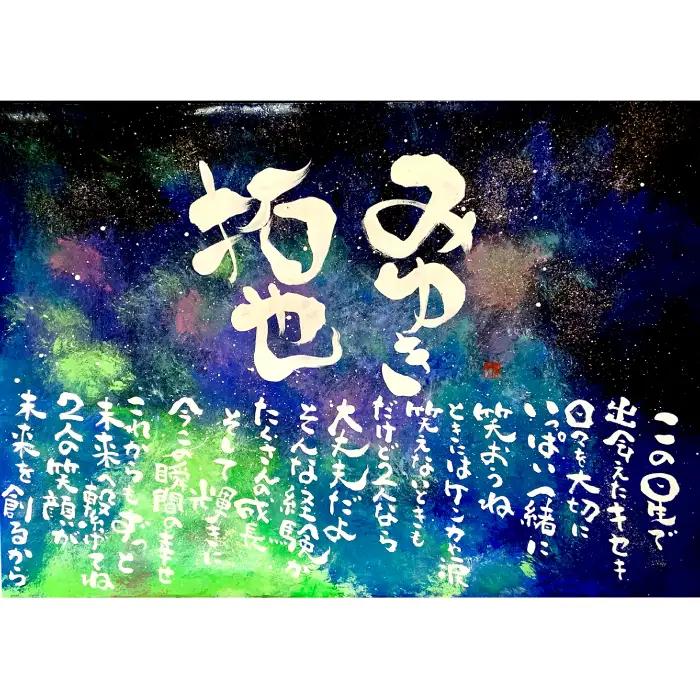 みゆき
拓也
この星で
出会えたキセキ
日々を大切に
いっぱい一緒に
笑おうね
ときにはケンカや涙
笑えないときも
だけど2人なら
大丈夫だよ
そんな経験が
たくさんの成長
そして輝きに
今この瞬間の幸せ
これからもずっと
未来へ繋げてね
2人の笑顔が
未来を創るから